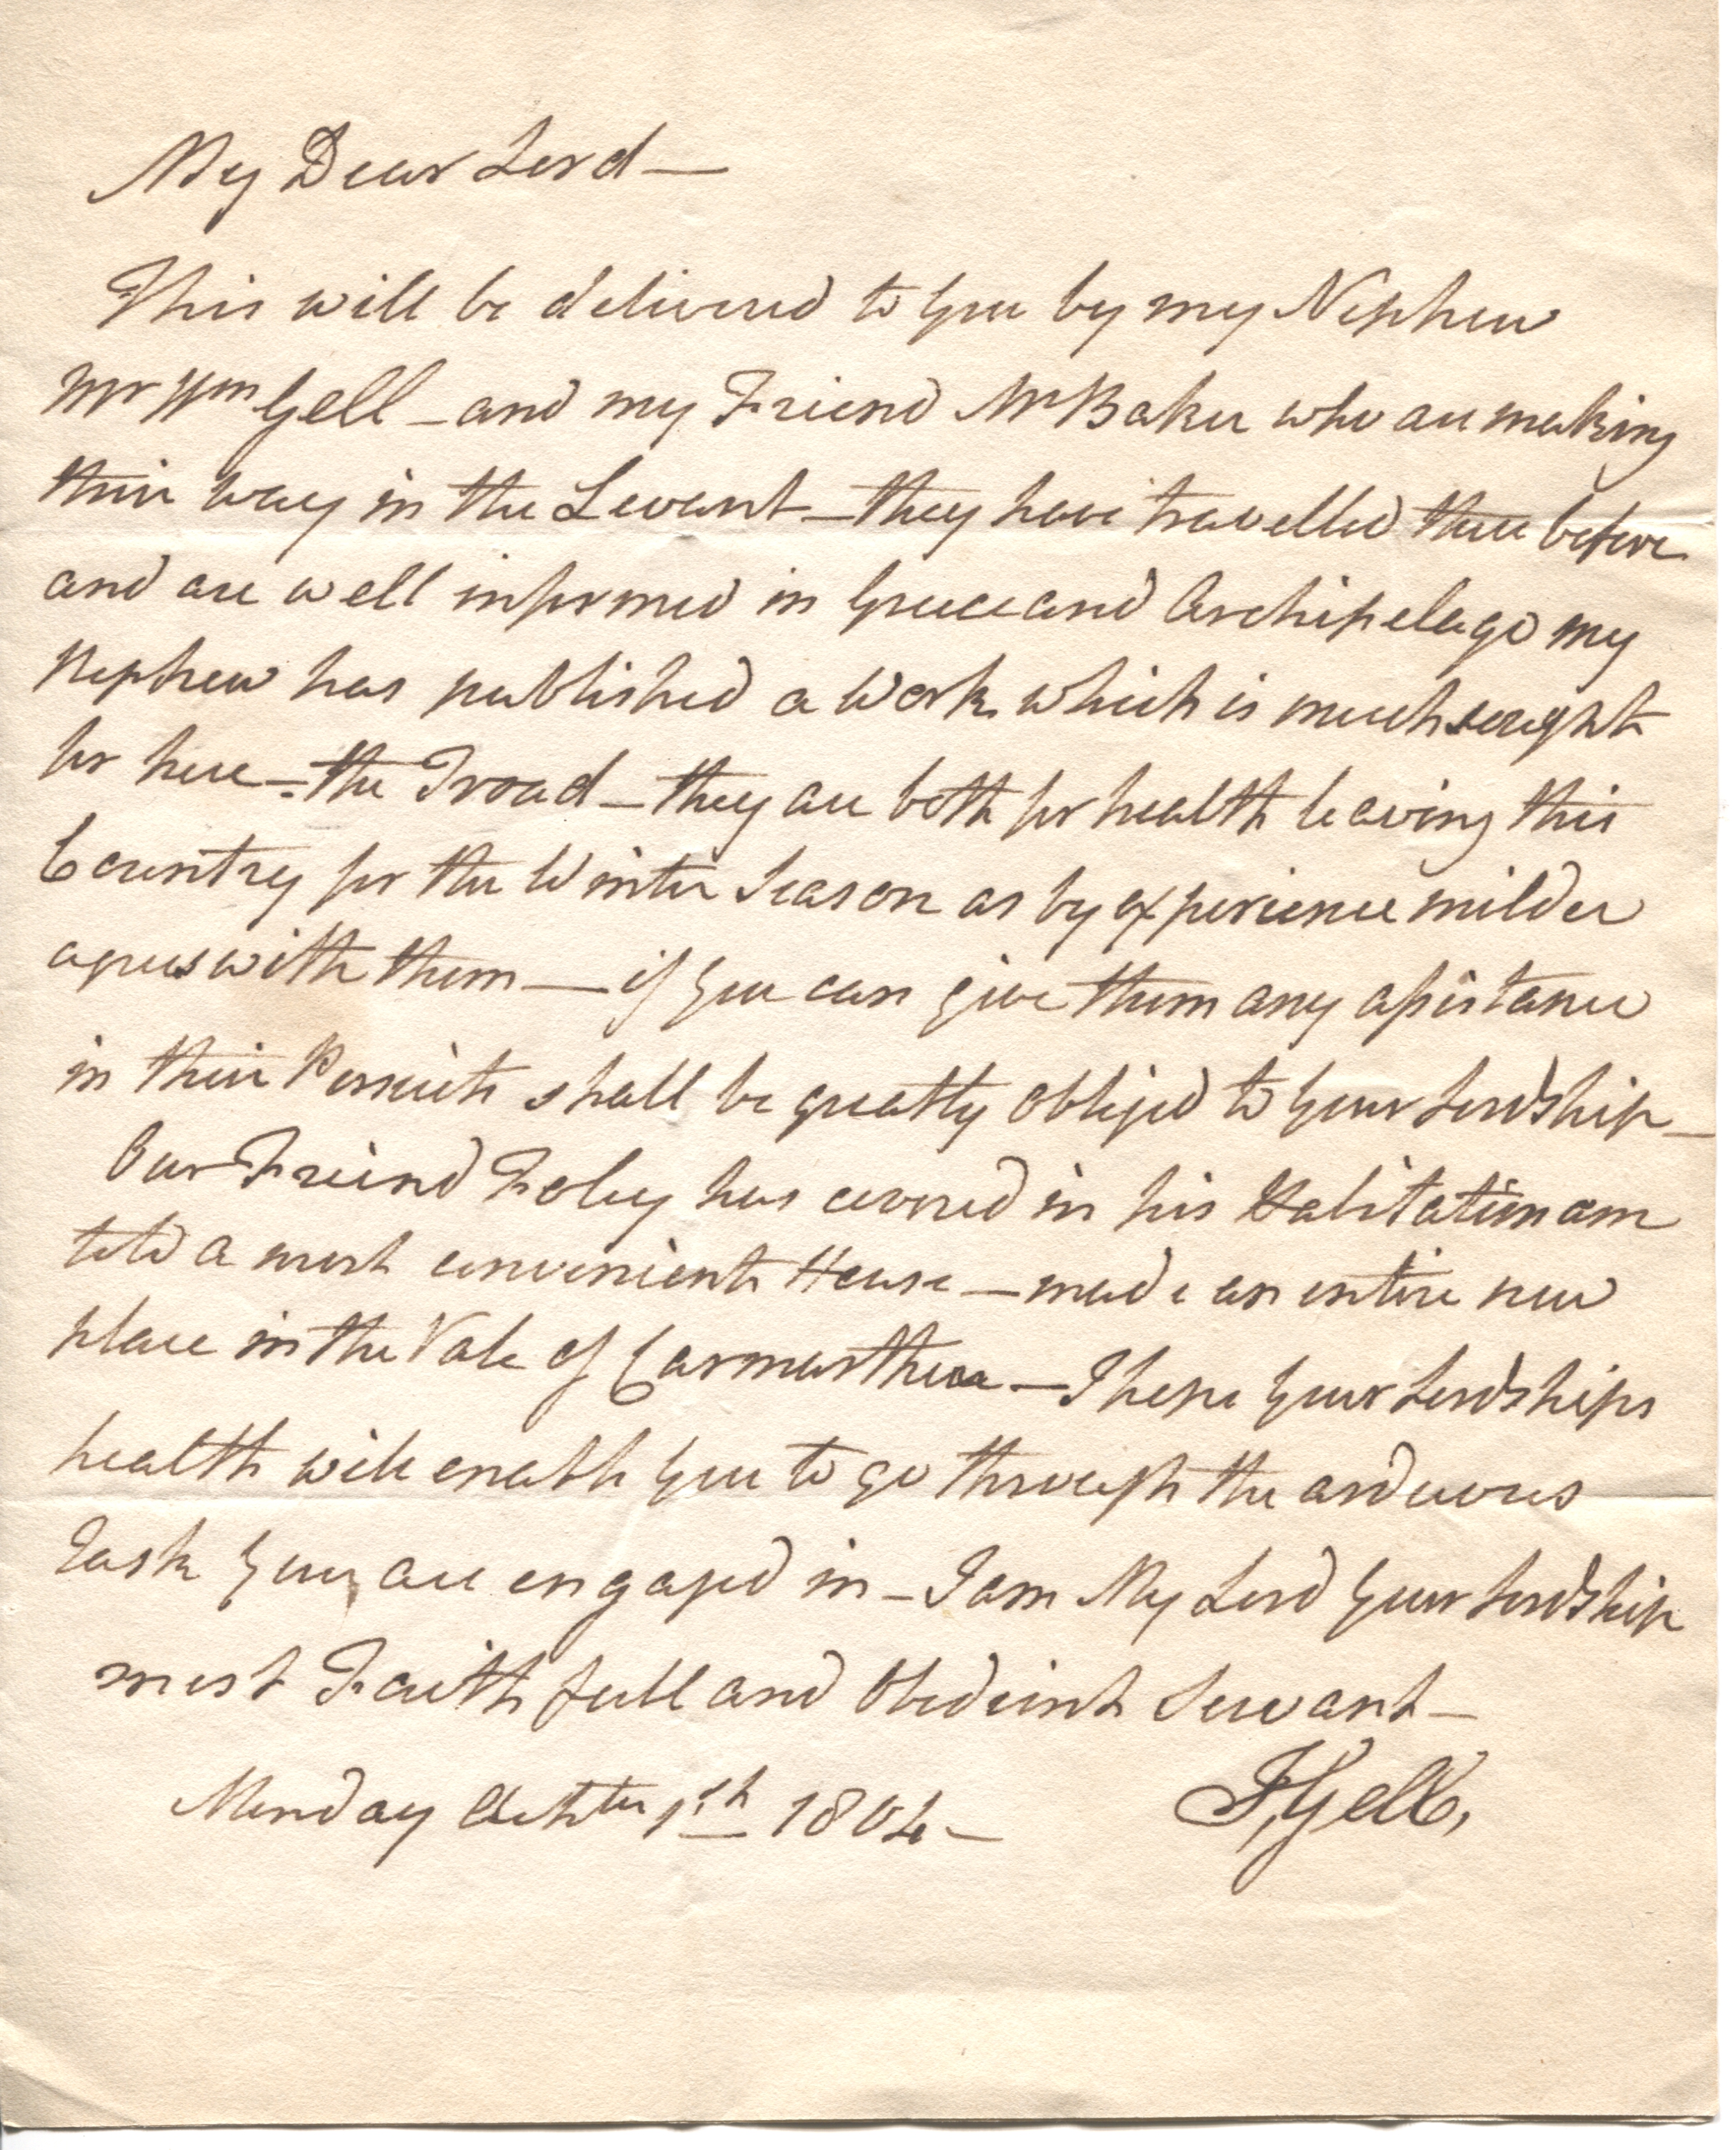 My Dear Lord —
This will be delivered to you by my Nephew
Mr Wm Gell – and my Friend Mr Baker who are making
their way in the Levant – they have travelled there before
and are well informed in Greece and Archipelago my
Nephew has published a Work which is much sought
for here – the Troad – they are both for health leaving this
Country for the Winter Season as by experience milder
agrees with them — if you can give them any assistance
in their Persuits shall be greatly obliged to your Lordship –
Our Freind Foley has covered in his Habitation am
told a most convenient House – made an entire new
place in the Vale of Carmarthen – I hope your Lordships
health will enable you to go through the arduous
Task you are engaged in – I am My Lord your Lordship
most Faithfull and Obedient Servant –
Monday 1st 1804 – Gell,